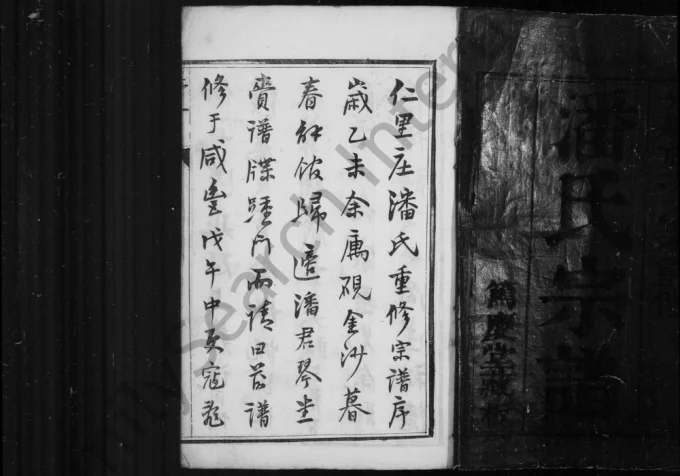 潘氏宗譜
篤慶堂藏板
仁里庄潘氏重修宗譜序
歲乙未余寓硯金沙暮
春解館歸適潘君琴坐
賫譜牒踵门而请曰茲譜
修于咸豊戊午中更寇
mySearch Intern